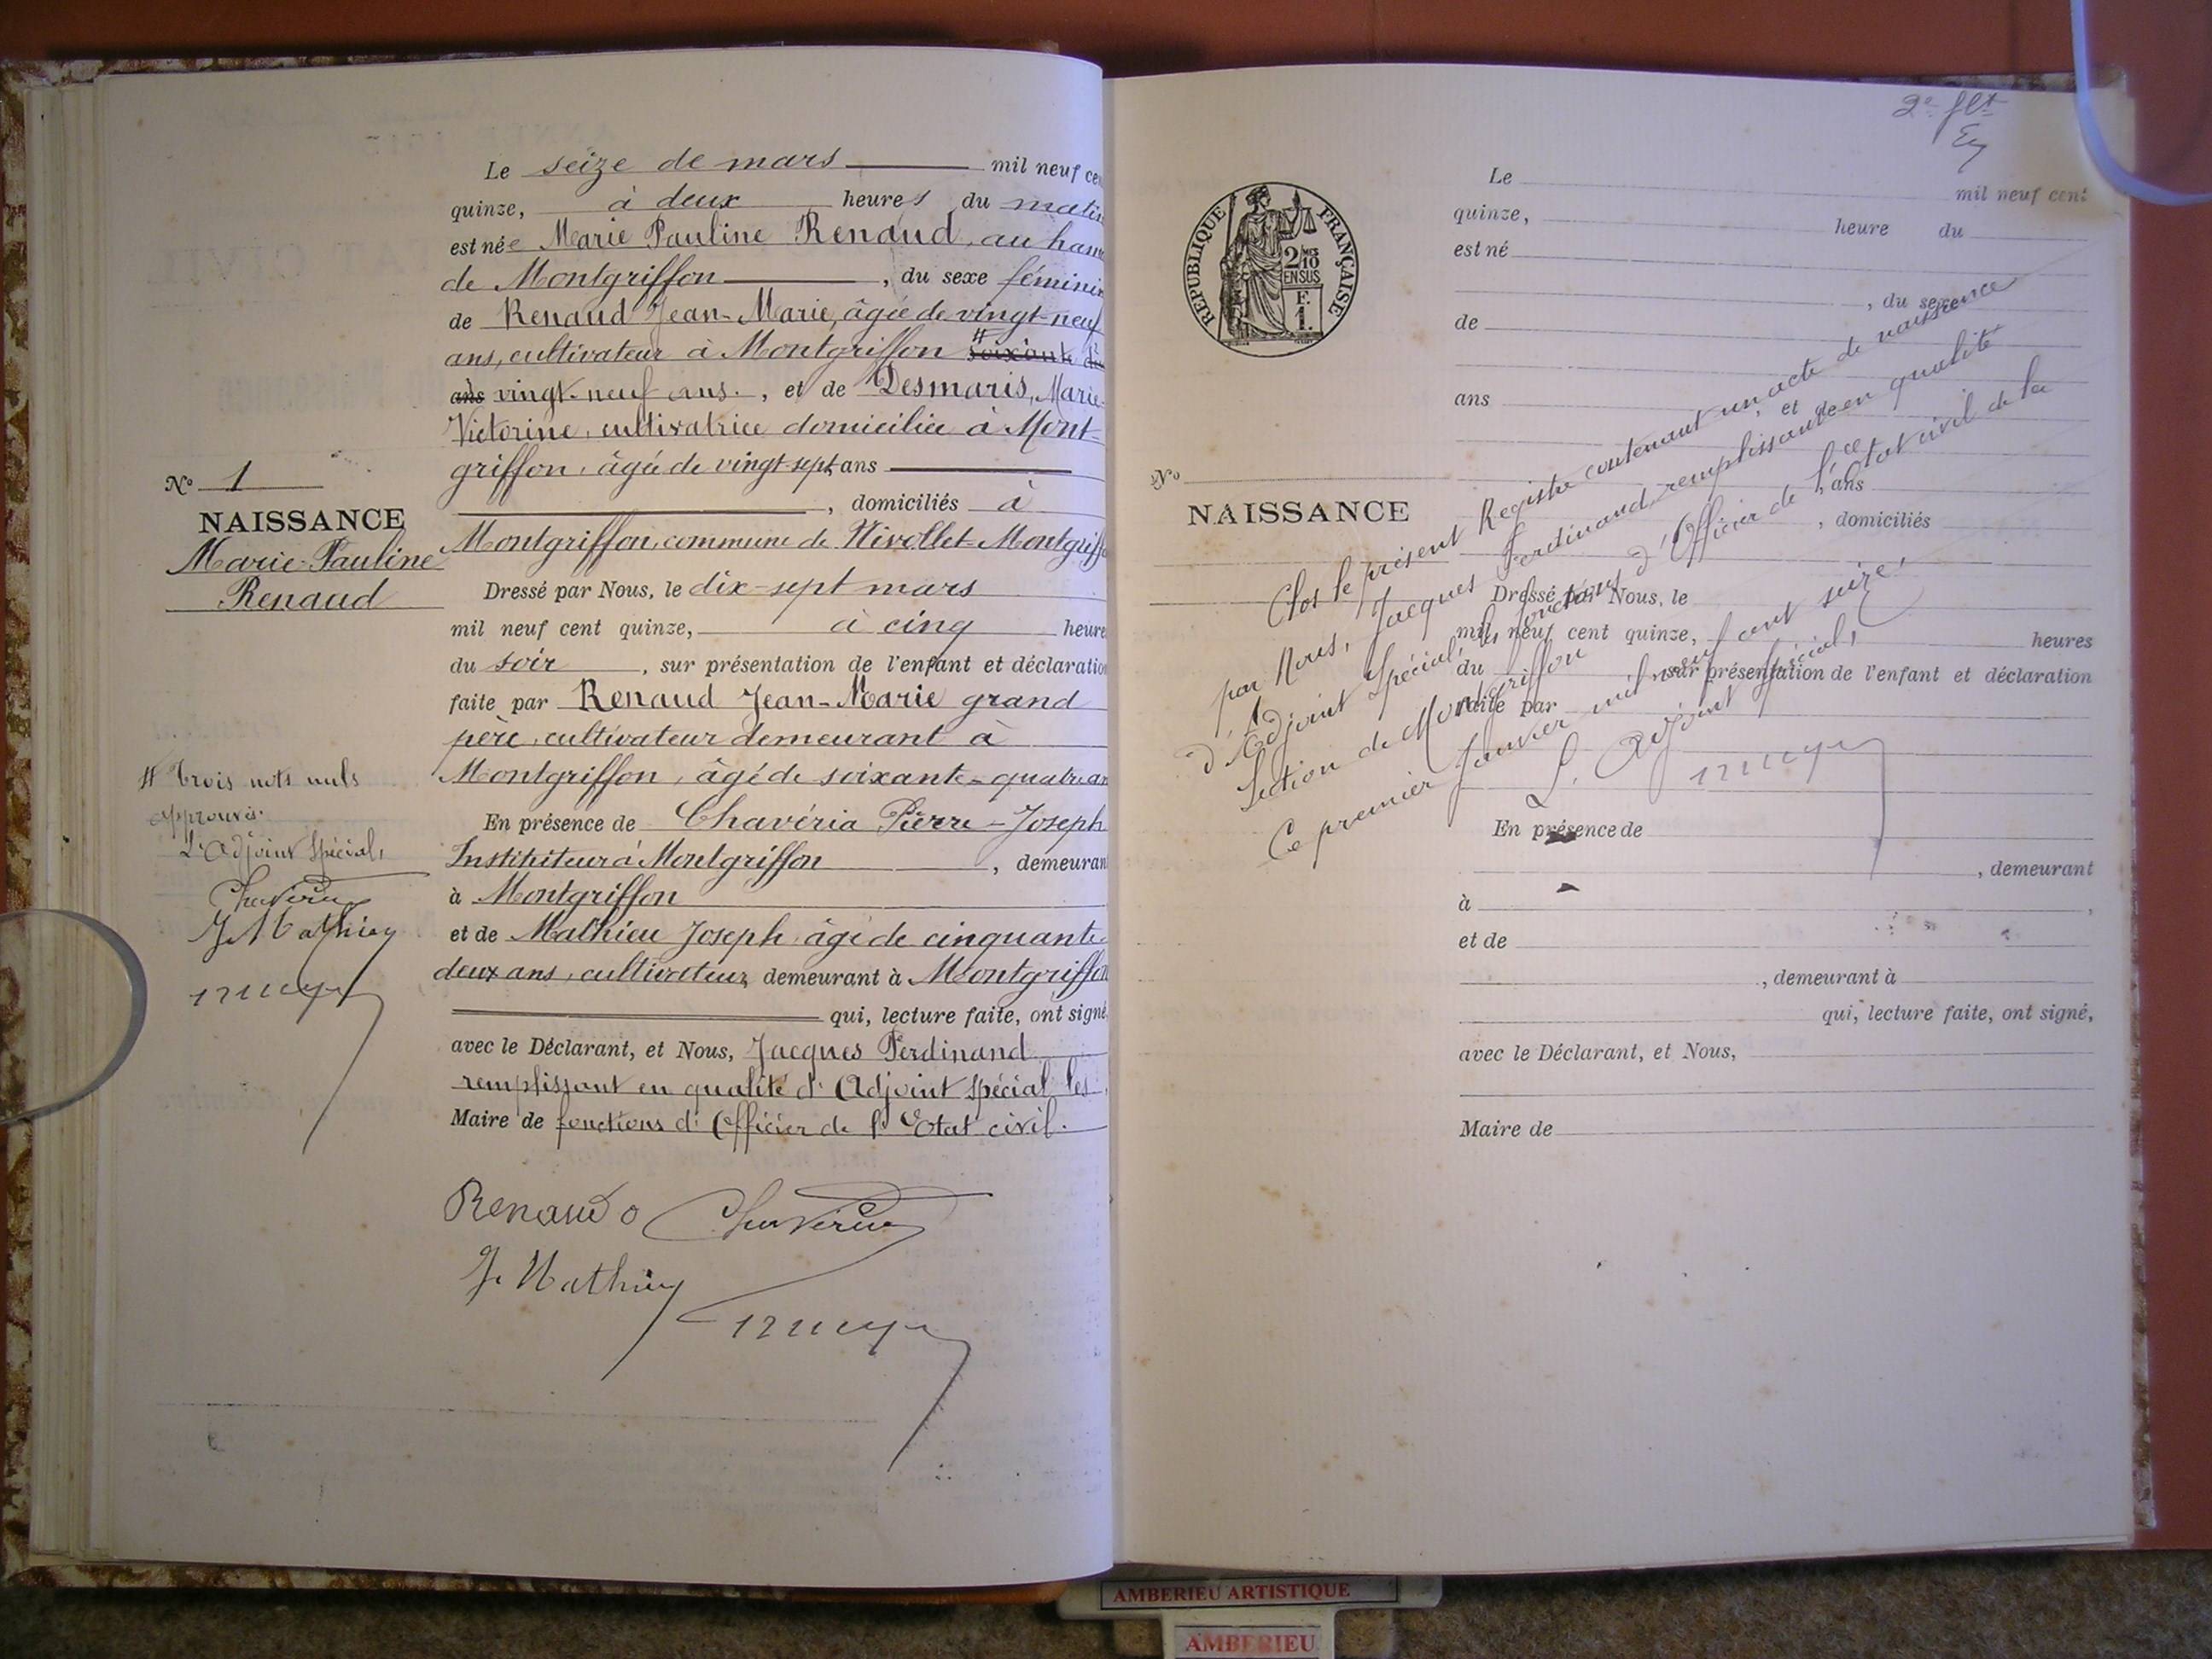 Le seize de mars mil neuf ce
quinze, à deux heures du matin
est née Marie Pauline Renaud, au ham
de Montgriffon, du sexe féminin
de Renaud Jean-Marie, âgée de vingt-neuf
ans, cultivateur à Montgriffon # soixante
ans vingt-neuf ans., et de Desmaris, Marie
Victorine, cultivatrice domiciliée à Mont-
griffon, âgée de vingt-sept ans
, domiciliés à
Montgriffon, commune de Nivollet-Montgriffo
Dressé par Nous, le dix-sept mars
mil neuf cent quinze, à cinq heure
du soir, sur présentation de l'enfant et déclaratio
faite par Renaud Jean-Marie grand
père, cultivateur demeurant à
Montgriffon, âgé de soixante-quatre an
En présence de Chavéria Pierre-Joseph
Instituteur à Montgriffon, demeuran
à Montgriffon
et de Mathieu Joseph âgé de cinquante-
deux ans, cultivateur, demeurant à Montgriffon
qui, lecture faite, ont signé
avec le Déclarant, et Nous, Jacques Ferdinand
remplissant en qualité d'Adjoint Spécial les
Maire de fonctions d'Officier de l'Etat civil.
Renaud
J. Mathieu
N° 1
NAISSANCE
Marie-Pauline
Renaud
# Trois mots nuls
approuvés.
L'Adjoint Spécial,
J. Mathieu
2e
REPUBLIQUE FRANÇAISE
2/10
EN SUS
F.
1.
N°
NAISSANCE
Le mil neuf cent
quinze, heure du
est né
, du sexe
de
ans , et de
, ans
, domiciliés
Dressé par Nous, le
mil neuf cent quinze, heures
du , sur présentation de l'enfant et déclaration
faite par
En présence de
, demeurant
à ,
et de
, demeurant à
qui, lecture faite, ont signé,
avec le Déclarant, et Nous,
Maire de
Clos le présent Registre contenant un acte de naissence
par Nous, Jacques Ferdinand, remplissant en qualité
d'Adjoint Spécial, les fonctions d'Officier de l'état civil de la
Section de Montgriffon ce
Ce premier Janvier mil neuf cent seize.
L'Adjoint Spécial,
AMBERIEU ARTISTIQUE
AMBERIEU